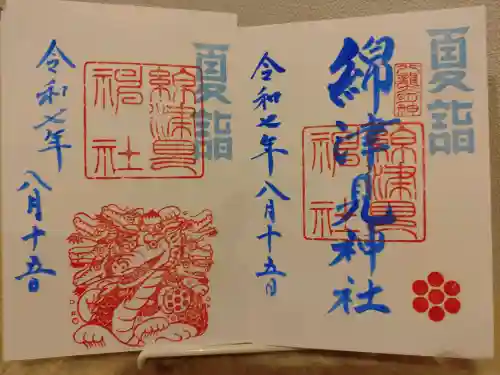 夏詣
綿津見神社
令和七年八月十五日
綿津見
神社
夏詣
令和七年
八月十五日
綿津見
神社